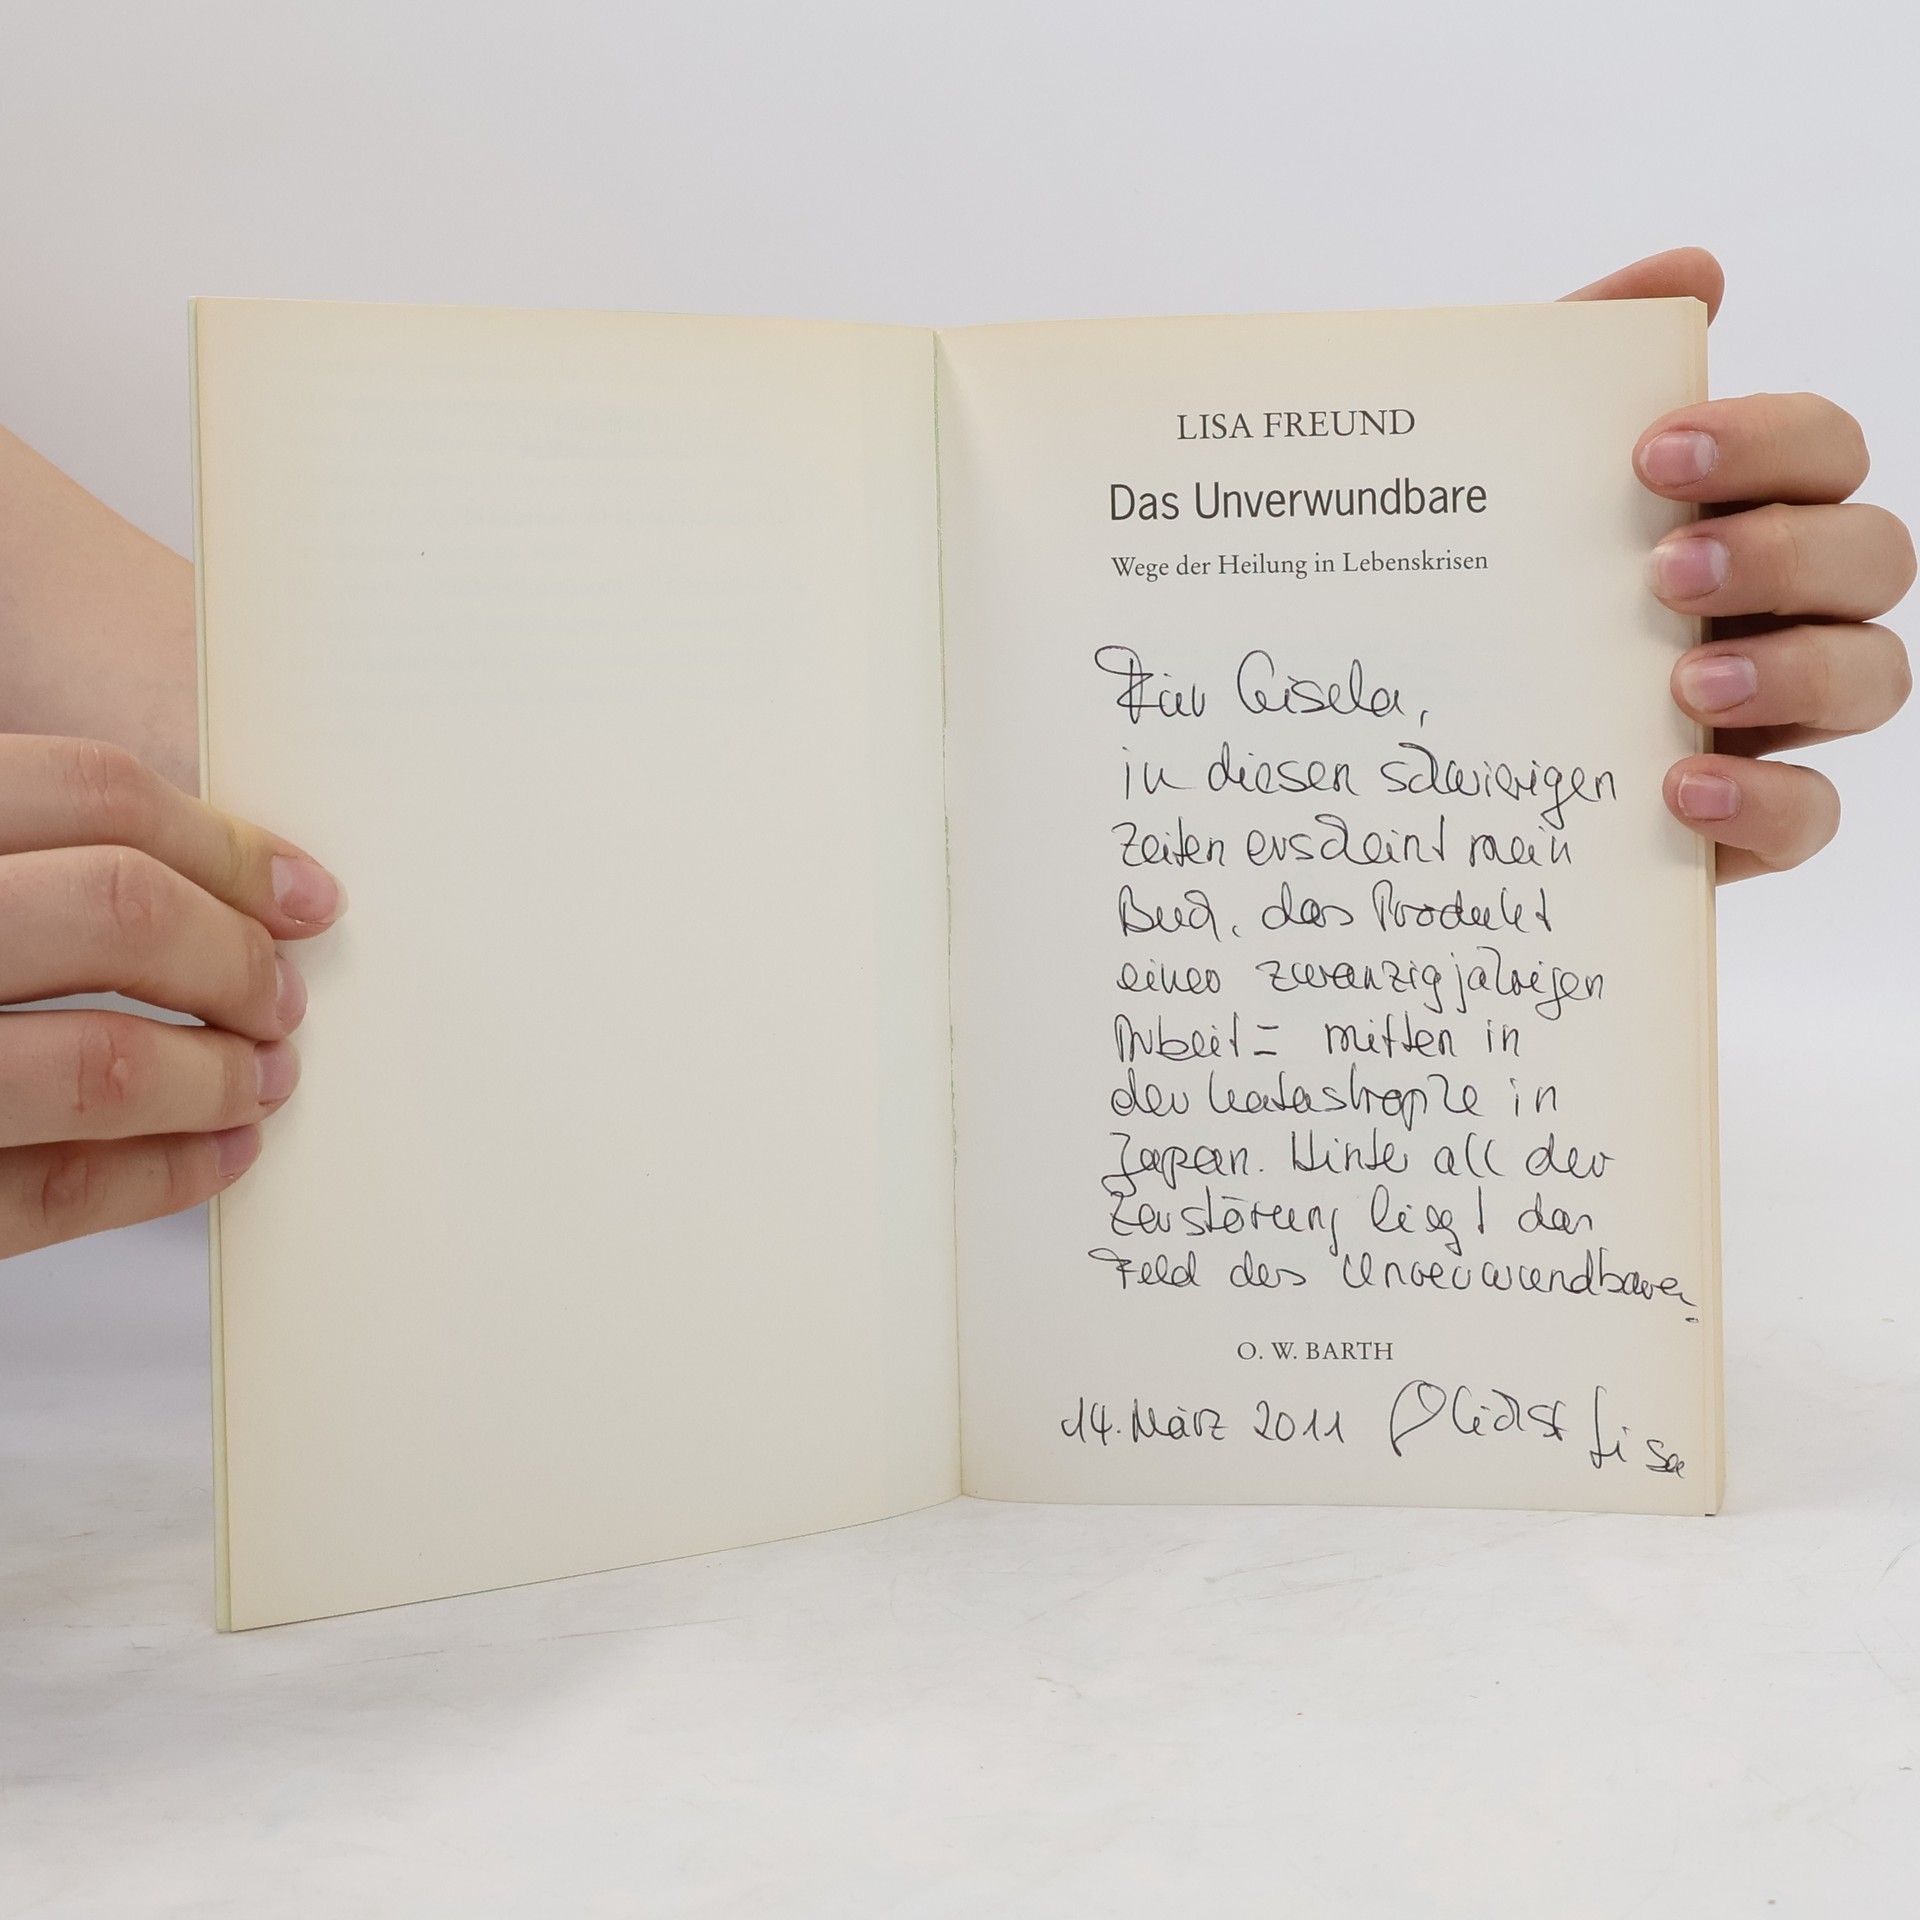 LISA FREUND
Das Unverwundbare
Wege der Heilung in Lebenskrisen
Für Gisela,
in diesen schwierigen
Zeiten erscheint mein
Buch, das Produkt
einer zwanzigjährigen
Arbeit – mitten in
der Katastrophe in
Japan. Hinter all der
Zerstörung liegt das
Feld des Unverwundbaren.
O. W. BARTH
14. März 2011 Lisa